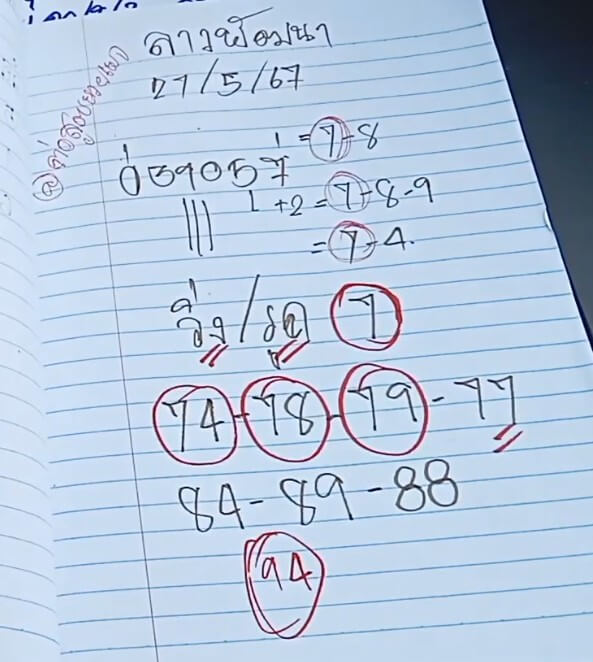 ลาวพัฒนา
27/5/67
1 = 7-8
039057
1+2 = 7-8-9
= 7-4.
วิ่ง/รูด 7
74-78-79-77
84-89-88
94